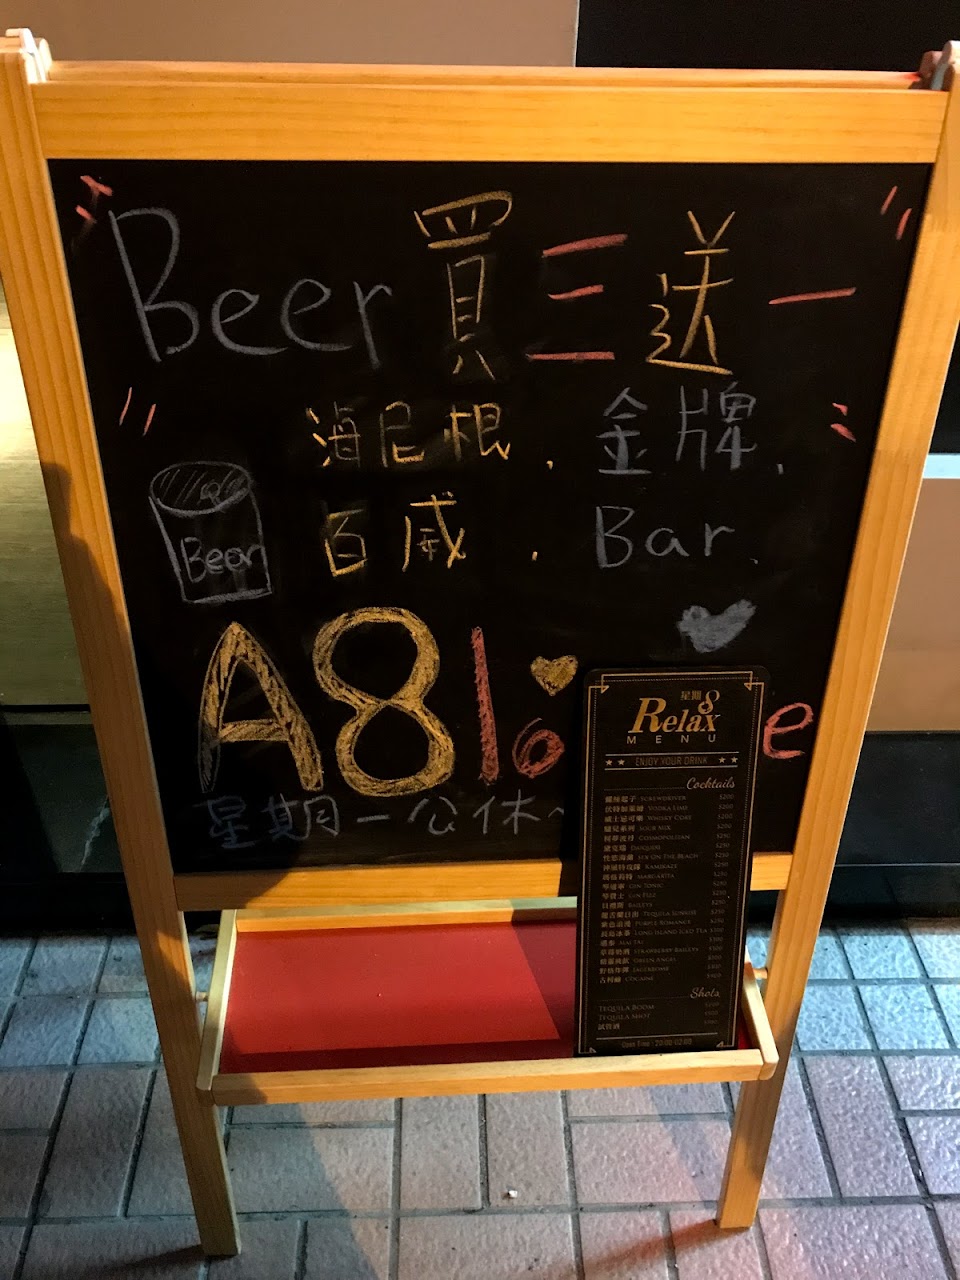 Beer 買三送一
海尼根. 金牌.
百威. Bar.
Bear
A8 lo e
星期一公休~
星期8
Relax
MENU
ENJOY YOUR DRINK
Cocktails
螺絲起子 SCREWDRIVER $200
伏特加萊姆 VODKA LIME $200
威士忌可樂 WHISKY COKE $200
COSMOPOLITAN $250
黛克瑞 DAIQUIRI $250
SEX ON THE BEACH $250
神風特攻隊 KAMIKAZE $250
瑪格莉特 MARGARITA $250
琴通寧 GIN TONIC $250
琴費士 GIN FIZZ $250
貝禮斯 BAILEYS $250
龍舌蘭日出 TEQUILA SUNRISE $250
紫色浪漫 PURPLE ROMANCE $250
長島冰茶 LONG ISLAND ICED TEA $300
邁泰 MAI TAI $300
草莓奶酒 STRAWBERRY BAILEYS $300
GREEN ANGEL $300
野格炸彈 JAGERBOMB
古柯鹼 COCAINE
Shots
TEQUILA BOOM
TEQUILA SHOT
試管酒
Open Time : 20:00-02:00